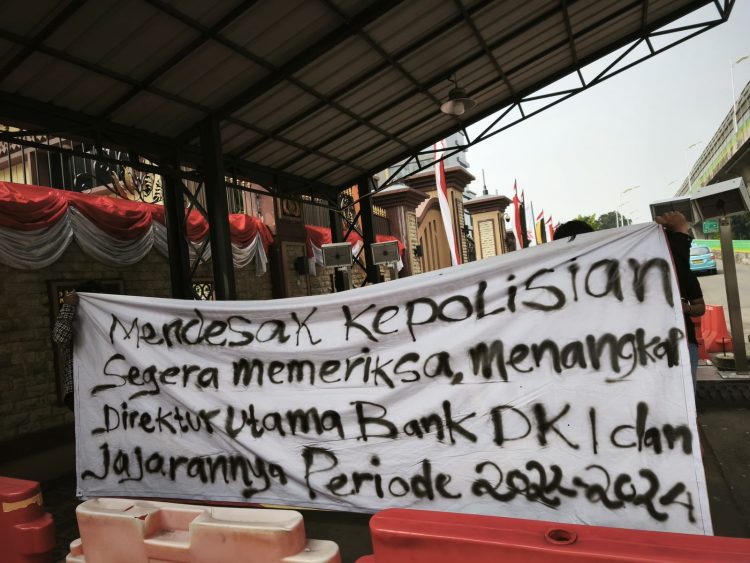 Mendesak Kepolisian
Segera memeriksa, menangkap
Direktur Utama Bank DKI dan
Jajarannya Periode 2022-2024